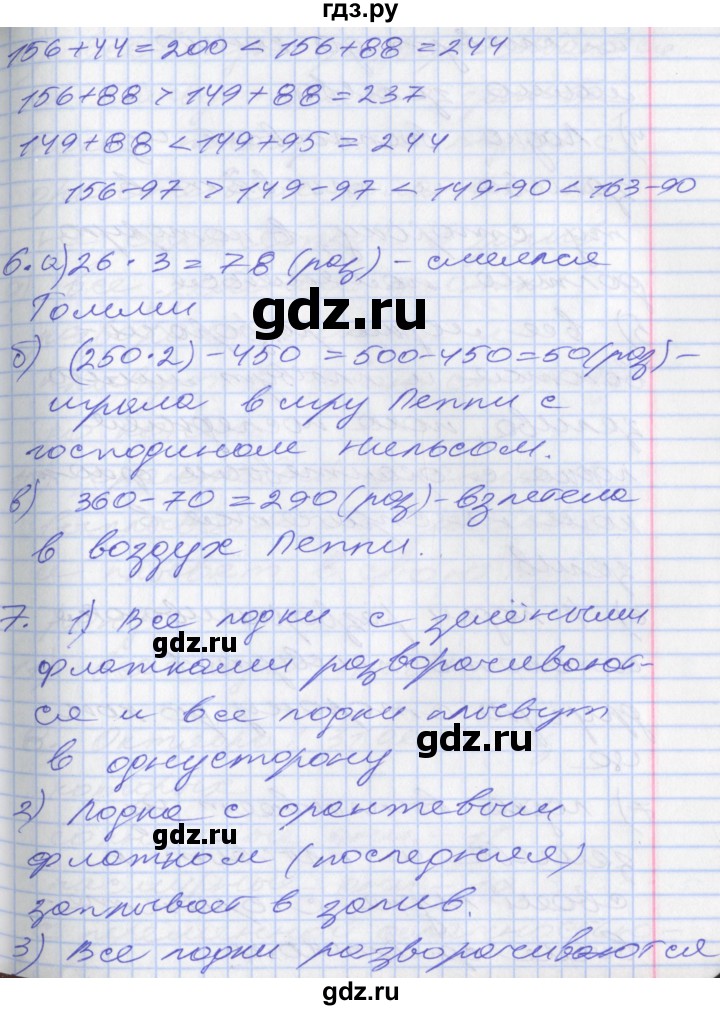 гдз.ру
156+44=200<156+88=244
156+88>149+88=237
149+88<149+95=244
156-97>149-97<149-90<163-90
6. а) 26·3=78 (раз) - смеялся
Томми
gdz.ru
б) (250·2)-450=500-450=50 (раз) -
играла в игру Пеппи с
господином Нильсом.
в) 360-70=290 (раз) - взлетела
в воздух Пеппи.
7. 1) Все лодки с зелёными
gdz.ru
флажками разворачивают-
ся и все лодки плывут
gdz.ru
в однусторону
2) Лодка с оранжевым
gdz.ru
флажком (последняя)
заплывает в залив.
3) Все лодки разворачиваются
gdz.ru